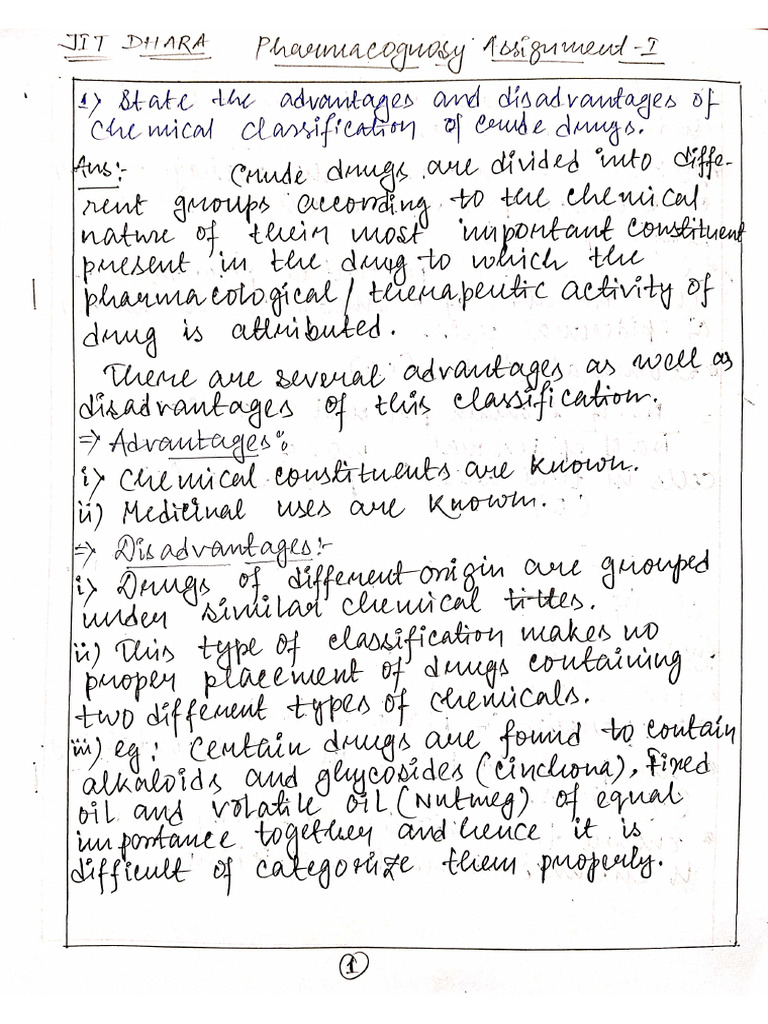 JIT DHARA Pharmacognosy Assignment-I
1) State the advantages and disadvantages of
chemical classification of crude drugs.
Ans:- Crude drugs are divided into diffe-
rent groups according to the chemical
nature of their most important constituent
present in the drug to which the
pharmacological/therapeutic activity of
drug is attributed.
There are several advantages as well as
disadvantages of this classification.
=> Advantages:
i) Chemical constituents are known.
ii) Medicinal uses are known.
=> Disadvantages:-
i) Drugs of different origin are grouped
under similar chemical titles.
ii) This type of classification makes no
proper placement of drugs containing
two different types of chemicals.
iii) eg: Certain drugs are found to contain
alkaloids and glycosides (cinchona), Fixed
oil and volatile oil (Nutmeg) of equal
importance together and hence it is
difficult of categorize them properly.
1